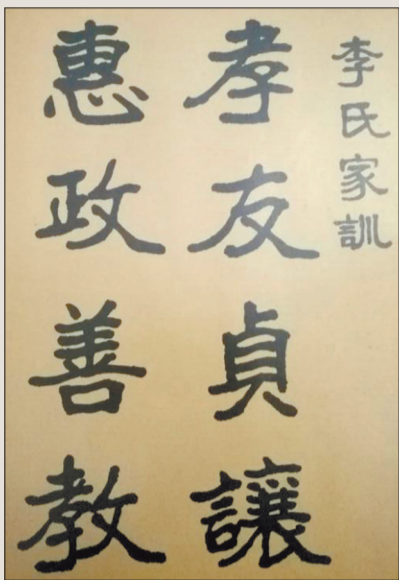 李氏家訓
孝友貞讓
惠政善教